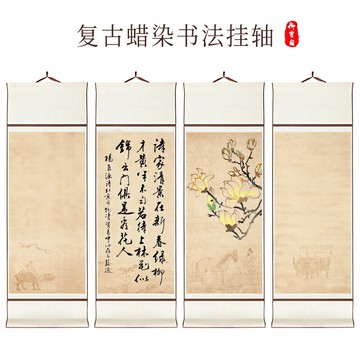 复古蜡染书法挂轴
诗家清景在新春绿柳
才黄半未匀若待上林花似
錦出门俱是看花人